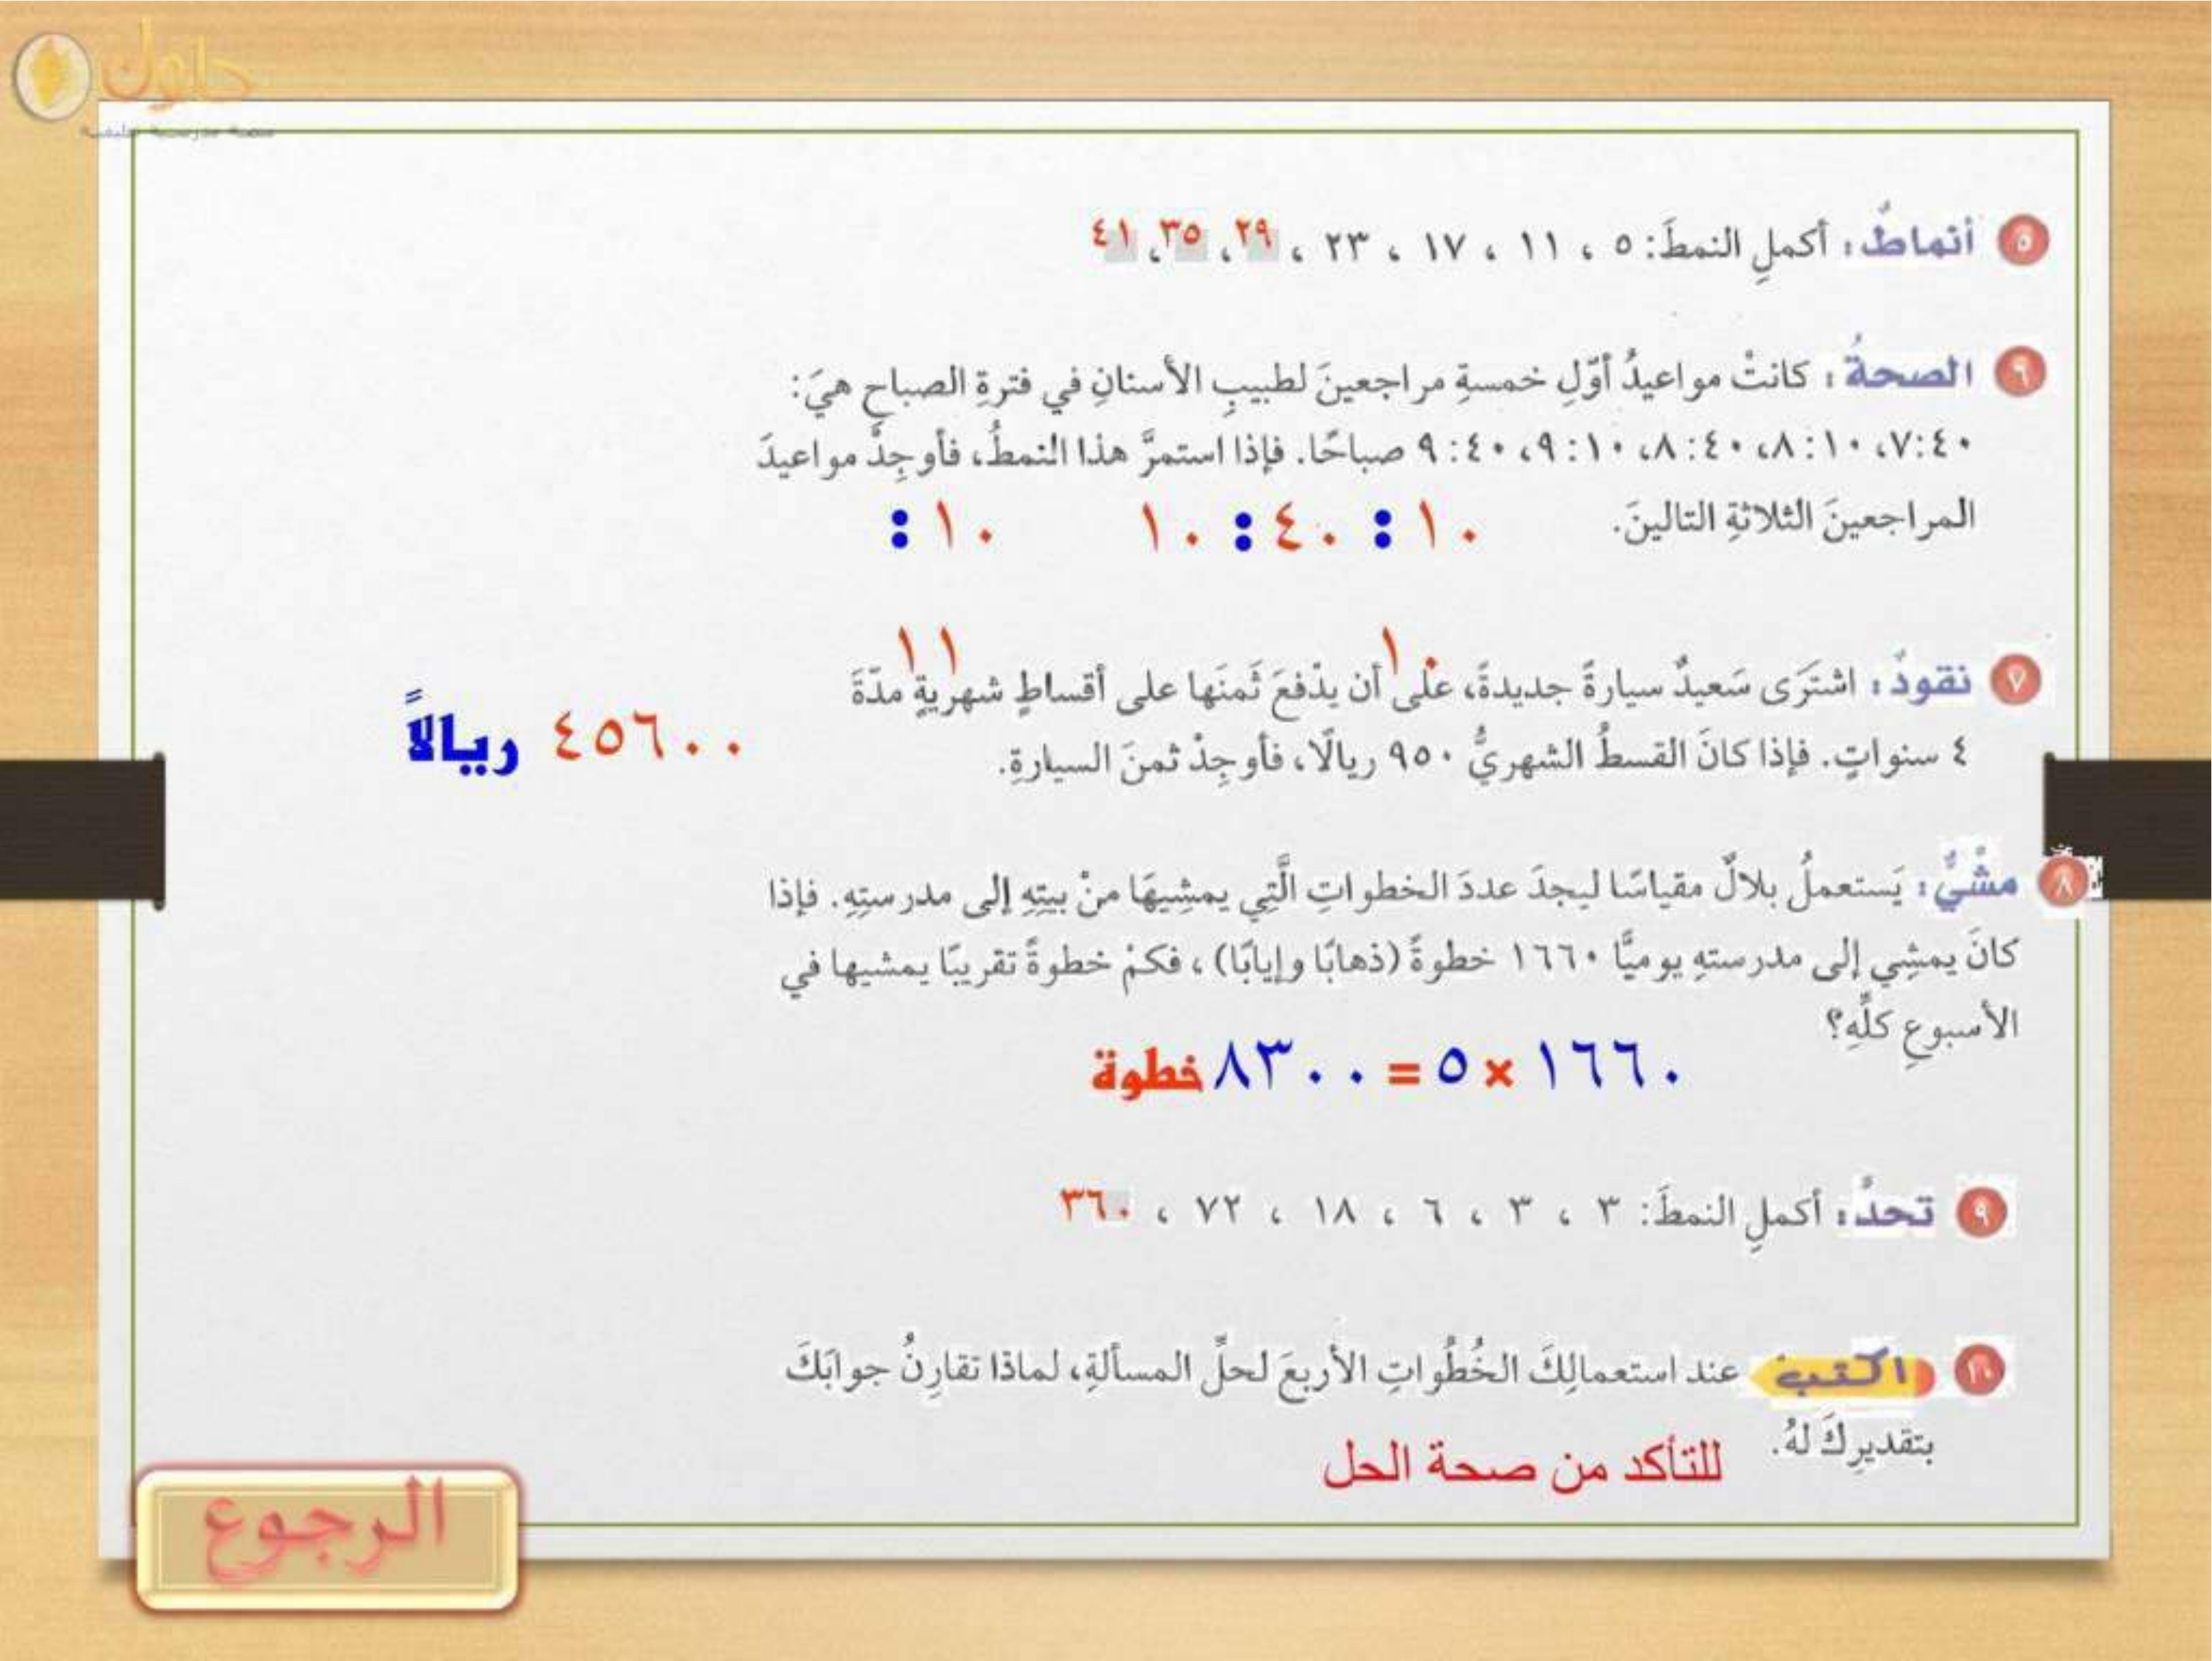 حلول
٥ أنماطٌ: أكملِ النمطَ: ٥ ، ١١ ، ١٧ ، ٢٣ ، ٢٩، ٣٥، ٤١
٦ الصحةُ: كانتْ مواعيدُ أوّلِ خمسةِ مراجعينَ لطبيبِ الأسنانِ في فترةِ الصباحِ هيَ:
٧:٤٠، ٨:١٠، ٨:٤٠، ٩:١٠، ٩:٤٠ صباحًا. فإذا استمرَّ هذا النمطُ، فأوجِدْ مواعيدَ
المراجعينَ الثلاثةِ التالينَ.
١٠ : ٤٠ : ١٠ ١٠ :
١٠ ١١
٧ نقودٌ: اشتَرَى سَعيدٌ سيارةً جديدةً، على أن يدْفعَ ثَمنَها على أقساطٍ شهريةٍ مدّةَ
٤ سنواتٍ. فإذا كانَ القسطُ الشهريُّ ٩٥٠ ريالًا، فأوجِدْ ثمنَ السيارةِ.
٤٥٦٠٠ ريالاً
٨ مشْيٌ: يَستعملُ بلالٌ مقياسًا ليجدَ عددَ الخطواتِ الَّتِي يمشِيهَا منْ بيتِهِ إلى مدرستِهِ. فإذا
كانَ يمشِي إلى مدرستهِ يوميًّا ١٦٦٠ خطوةً (ذهابًا وإيابًا) ، فكمْ خطوةً تقريبًا يمشيها في
الأسبوعِ كلِّهِ؟
١٦٦٠ × ٥ = ٨٣٠٠ خطوة
٩ تحدٍّ: أكملِ النمطَ: ٣ ، ٣ ، ٦ ، ١٨ ، ٧٢ ، ٣٦٠
١٠ اكتب عند استعمالِكَ الخُطُواتِ الأربعَ لحلِّ المسألةِ، لماذا تقارِنُ جوابَكَ
بتقديرِكَ لهُ.
للتأكد من صحة الحل
الرجوع